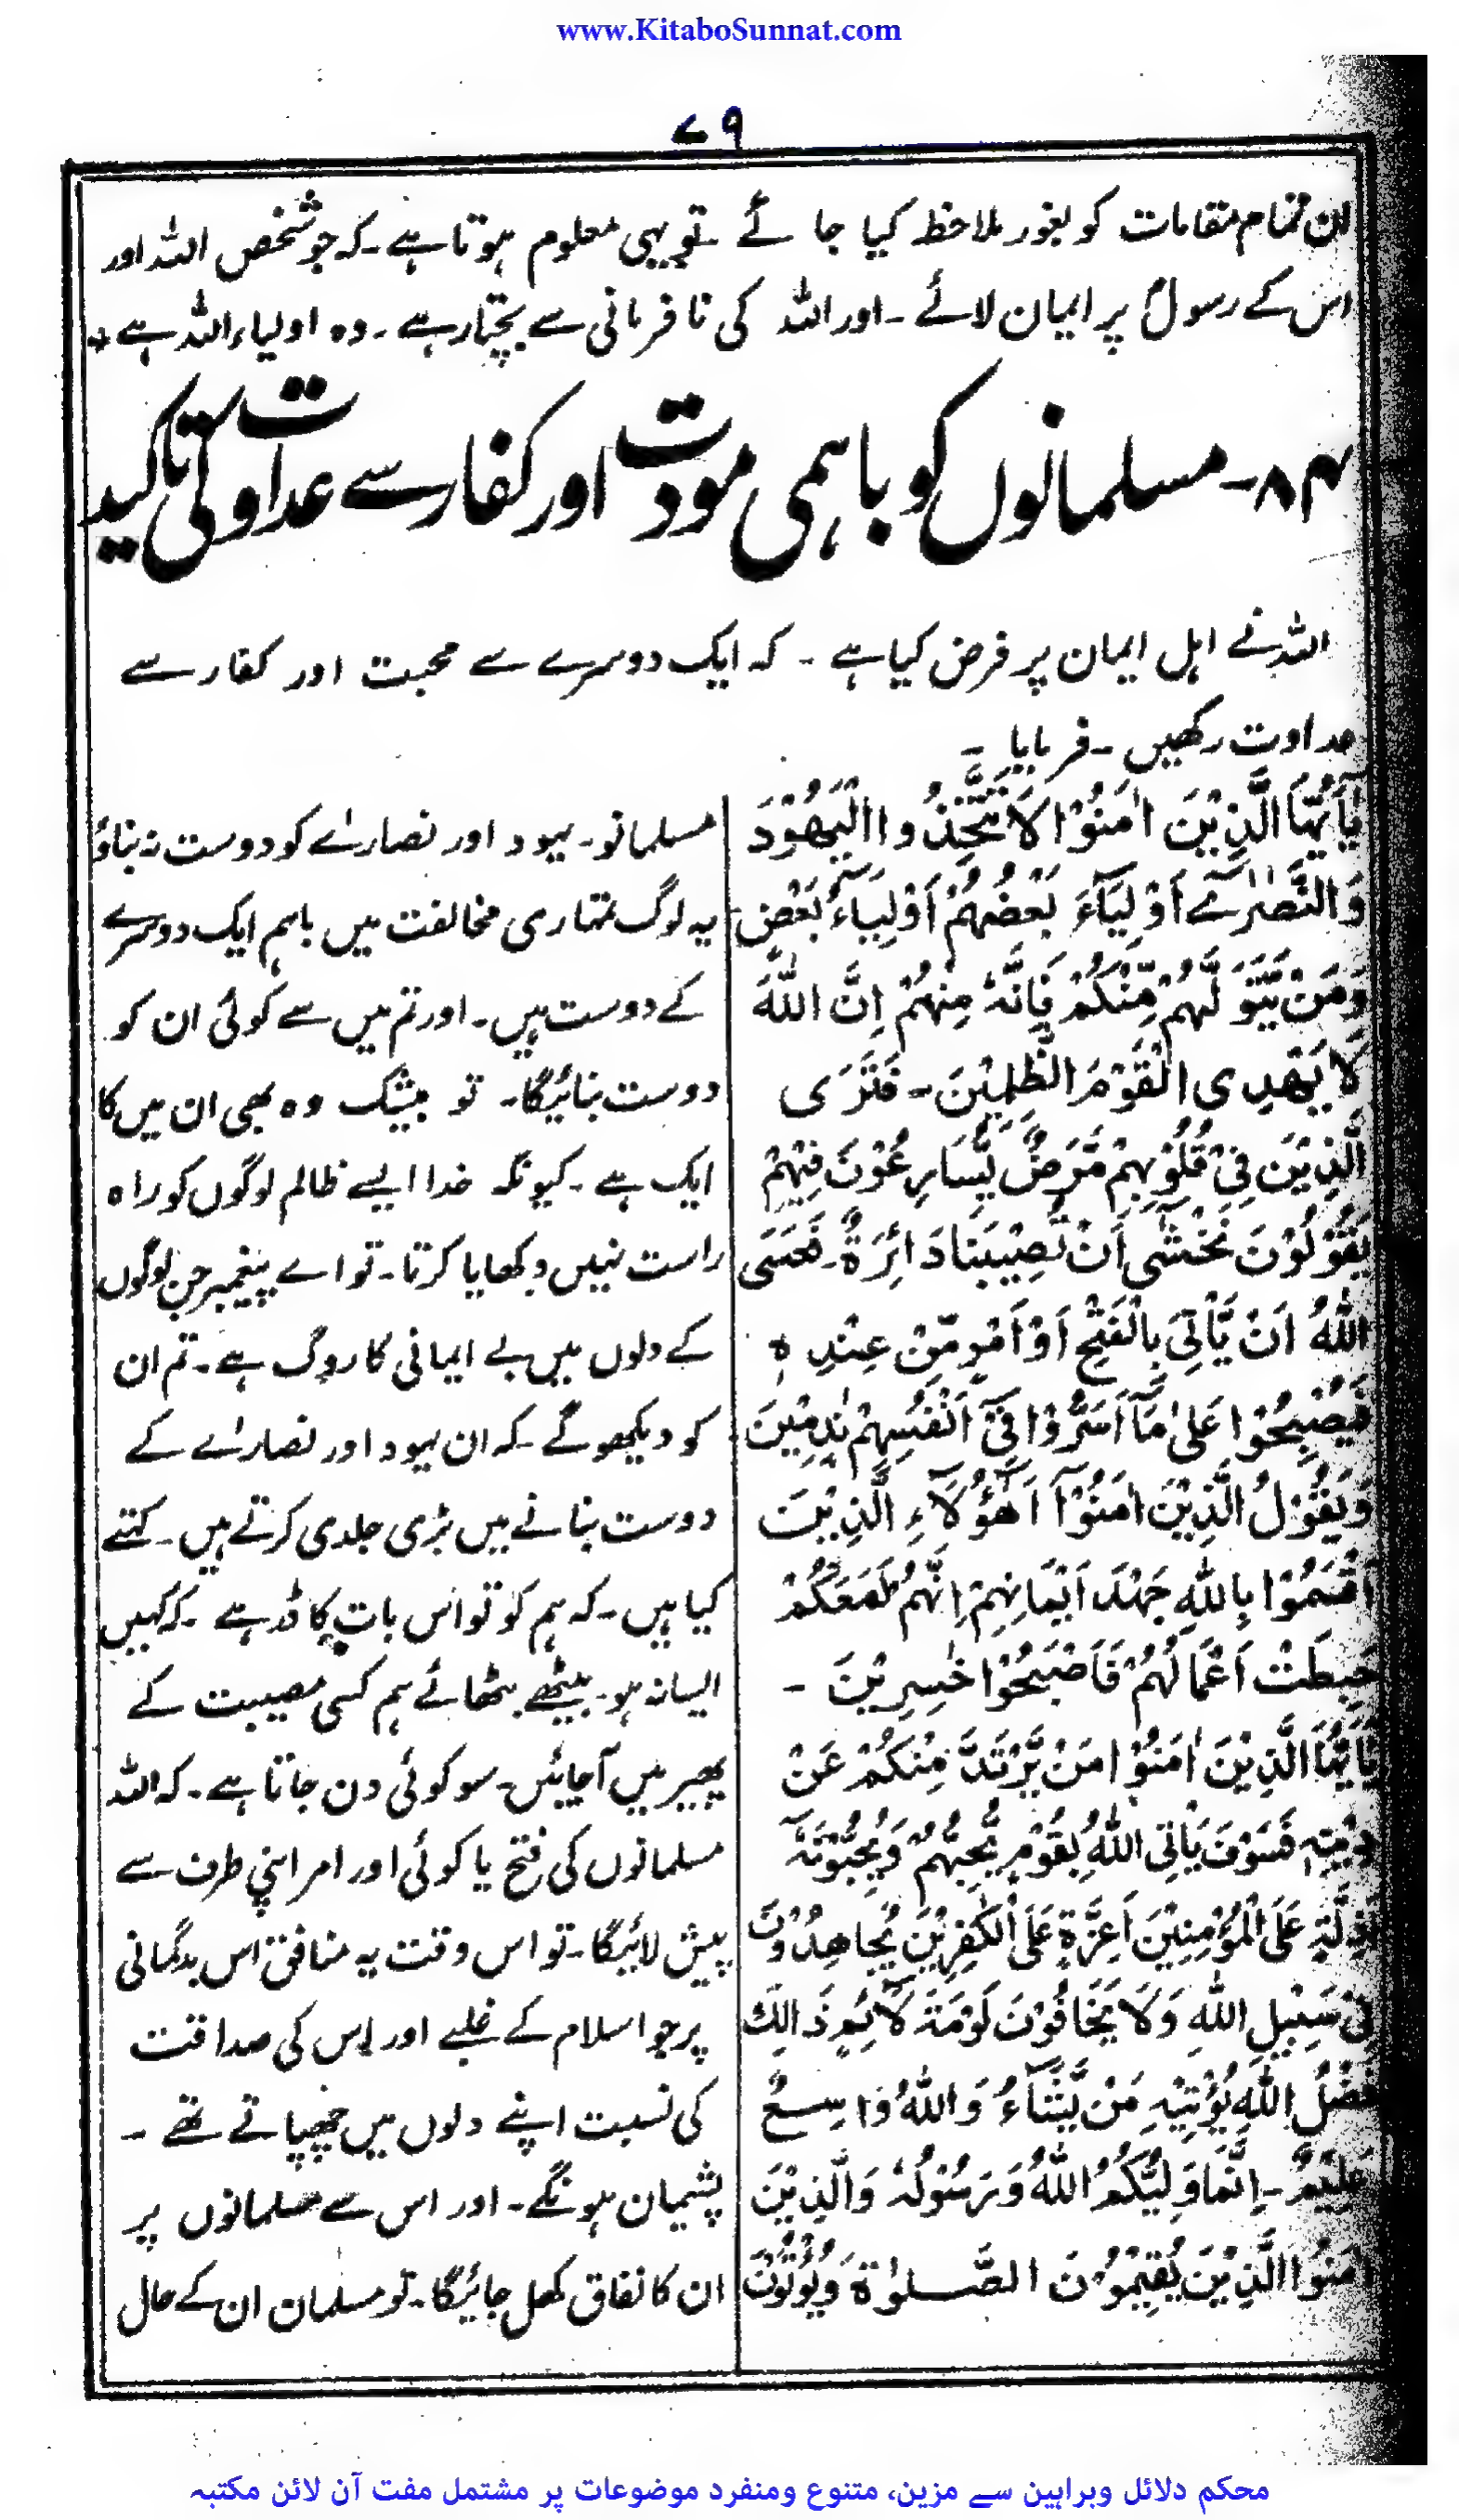 www.KitaboSunnat.com
۷۹
ان تمام مقامات کو بغور ملاحظہ کیا جائے تو یہی معلوم ہوتا ہے۔ کہ جو شخص اللہ اور
اس کے رسولؐ پر ایمان لائے۔ اور اللہ کی نافرمانی سے بچتا رہے۔ وہ اولیاء اللہ ہے۔
۸۴۔ مسلمانوں کو باہمی مودت اور کفار سے عداوت کی تاکید
اللہ نے اہل ایمان پر فرض کیا ہے۔ کہ ایک دوسرے سے محبت اور کفار سے
عداوت رکھیں۔ فرمایا۔
يٰٓاَيُّهَا الَّذِيْنَ اٰمَنُوْا لَا تَتَّخِذُوا الْيَهُوْدَ
وَالنَّصٰرٰےٓ اَوْلِيَآءَ بَعْضُهُمْ اَوْلِيَاءُ بَعْضٍ
وَمَنْ يَّتَوَلَّهُمْ مِّنْكُمْ فَاِنَّهٗ مِنْهُمْ اِنَّ اللّٰهَ
لَا يَهْدِى الْقَوْمَ الظّٰلِمِيْنَ۔ فَتَرَى
الَّذِيْنَ فِىْ قُلُوْبِهِمْ مَّرَضٌ يُّسَارِعُوْنَ فِيْهِمْ
يَقُوْلُوْنَ نَخْشٰٓى اَنْ تُصِيْبَنَا دَائِرَةٌ۔ فَعَسَى
اللّٰهُ اَنْ يَّاْتِىَ بِالْفَتْحِ اَوْ اَمْرٍ مِّنْ عِنْدِهٖ
فَيُصْبِحُوْا عَلٰى مَآ اَسَرُّوْا فِىْٓ اَنْفُسِهِمْ نٰدِمِيْنَ
وَيَقُوْلُ الَّذِيْنَ اٰمَنُوْٓا اَهٰٓؤُلَآءِ الَّذِيْنَ
اَقْسَمُوْا بِاللّٰهِ جَهْدَ اَيْمَانِهِمْ اِنَّهُمْ لَمَعَكُمْ
حَبِطَتْ اَعْمَالُهُمْ فَاَصْبَحُوْا خٰسِرِيْنَ۔
يٰٓاَيُّهَا الَّذِيْنَ اٰمَنُوْا مَنْ يَّرْتَدَّ مِنْكُمْ عَنْ
دِيْنِهٖ فَسَوْفَ يَاْتِى اللّٰهُ بِقَوْمٍ يُّحِبُّهُمْ وَيُحِبُّوْنَهٗٓ
اَذِلَّةٍ عَلَى الْمُؤْمِنِيْنَ اَعِزَّةٍ عَلَى الْكٰفِرِيْنَ يُجَاهِدُوْنَ
فِىْ سَبِيْلِ اللّٰهِ وَلَا يَخَافُوْنَ لَوْمَةَ لَآئِمٍ ذَالِكَ
فَضْلُ اللّٰهِ يُؤْتِيْهِ مَنْ يَّشَآءُ وَاللّٰهُ وَاسِعٌ
عَلِيْمٌ۔ اِنَّمَا وَلِيُّكُمُ اللّٰهُ وَرَسُوْلُهٗ وَالَّذِيْنَ
اٰمَنُوا الَّذِيْنَ يُقِيْمُوْنَ الصَّلٰوةَ وَيُؤْتُوْنَ
مسلمانو۔ یہود اور نصارےٰ کو دوست نہ بناؤ
یہ لوگ تمہاری مخالفت میں باہم ایک دوسرے
کے دوست ہیں۔ اور تم میں سے کوئی ان کو
دوست بنائیگا۔ تو بیشک وہ بھی ان میں کا
ایک ہے۔ کیونکہ خدا ایسے ظالم لوگوں کو راہ
راست نہیں دکھایا کرتا۔ تو اے پیغمبر جن لوگوں
کے دلوں میں بے ایمانی کا روگ ہے۔ تم ان
کو دیکھو گے۔ کہ ان یہود اور نصارےٰ کے
دوست بنانے میں بڑی جلدی کرتے ہیں۔ کہتے
کیا ہیں۔ کہ ہم کو تو اس بات کا ڈر ہے۔ کہ کہیں
ایسا نہ ہو۔ بیٹھے بٹھائے ہم کسی مصیبت کے
پھیر میں آ جائیں۔ سو کوئی دن جاتا ہے۔ کہ اللہ
مسلمانوں کی فتح یا کوئی اور امر اپنی طرف سے
پیش لائیگا۔ تو اس وقت یہ منافق اس بدگمانی
پر جو اسلام کے غلبے اور اس کی صداقت
کی نسبت اپنے دلوں میں چھپاتے تھے۔
پشیمان ہونگے۔ اور اس سے مسلمانوں پر
ان کا نفاق کھل جائیگا۔ تو مسلمان ان کے حال
محکم دلائل وبراہین سے مزین، متنوع ومنفرد موضوعات پر مشتمل مفت آن لائن مکتبہ